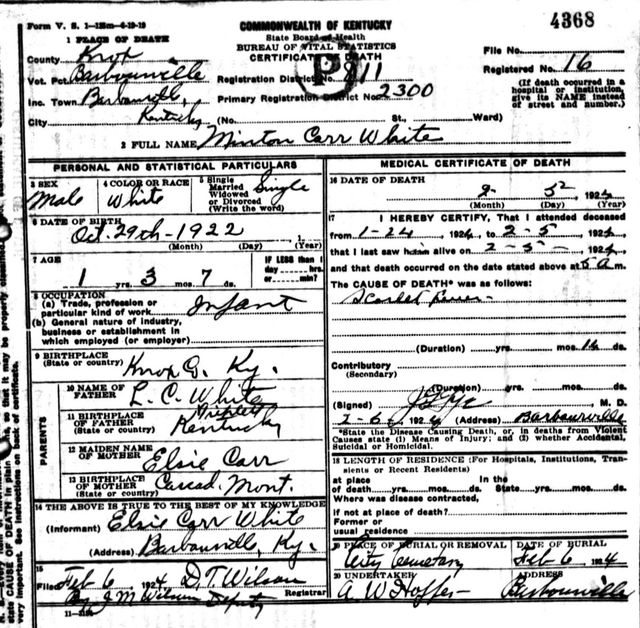 Form V. S. 1—125m—6-19-19
COMMONWEALTH OF KENTUCKY
4368
1 PLACE OF DEATH
State Board of Health
BUREAU OF VITAL STATISTICS
CERTIFICATE OF DEATH
County Knox
File No.
Vot. Pct. Barbourville
Registration District No. 811
Registered No. 16
P
Inc. Town Barbourville,
Primary Registration District No. 2300
(If death occurred in a hospital or institution, give its NAME instead of street and number.)
City Kentucky (No. St., Ward)
2 FULL NAME Minton Carr White
PERSONAL AND STATISTICAL PARTICULARS
3 SEX Male
4 COLOR OR RACE White
5 Single Married Widowed or Divorced (Write the word) Single
6 DATE OF BIRTH
Oct. 29th - 1922, 1
(Month) (Day) (Year)
7 AGE
IF LESS than 1 day hrs. or min?
1 yrs. 3 mos. 7 ds.
8 OCCUPATION
(a) Trade, profession or particular kind of work Infant
(b) General nature of industry, business or establishment in which employed (or employer)
9 BIRTHPLACE
(State or country) Knox Co. Ky.
PARENTS
10 NAME OF FATHER L. C. White
11 BIRTHPLACE OF FATHER (State or country) Kentucky
12 MAIDEN NAME OF MOTHER Elsie Carr
13 BIRTHPLACE OF MOTHER (State or country) Mont.
14 THE ABOVE IS TRUE TO THE BEST OF MY KNOWLEDGE
(Informant) Elsie Carr White
(Address) Barbourville, Ky.
15
Feb 6 1924 D. T. Wilson
Registrar
By J M Wilson Deputy
MEDICAL CERTIFICATE OF DEATH
16 DATE OF DEATH
2- 5 1924
(Month) (Day) (Year)
17 I HEREBY CERTIFY, That I attended deceased
from 1-24, 1924, to 2-5-, 1924,
that I last saw him alive on 2-5-, 1924,
and that death occurred on the date stated above at 5 a m.
The CAUSE OF DEATH* was as follows:
Scarlet fever
(Duration) yrs. mos. 12 ds.
Contributory
(Secondary)
(Duration) yrs. mos. ds.
(Signed) M. D.
2-6, 1924 (Address) Barbourville
*State the Disease Causing Death, or, in deaths from Violent Causes state (1) Means of Injury; and (2) whether Accidental, Suicidal or Homicidal.
18 LENGTH OF RESIDENCE (For Hospitals, Institutions, Transients or Recent Residents)
at place of death yrs. mos. ds. State yrs. mos. ds.
Where was disease contracted,
if not at place of death?
Former or usual residence
19 PLACE OF BURIAL OR REMOVAL
City Cemetary
DATE OF BURIAL
Feb 6 1924
20 UNDERTAKER
A W Hopper
ADDRESS
Barbourville